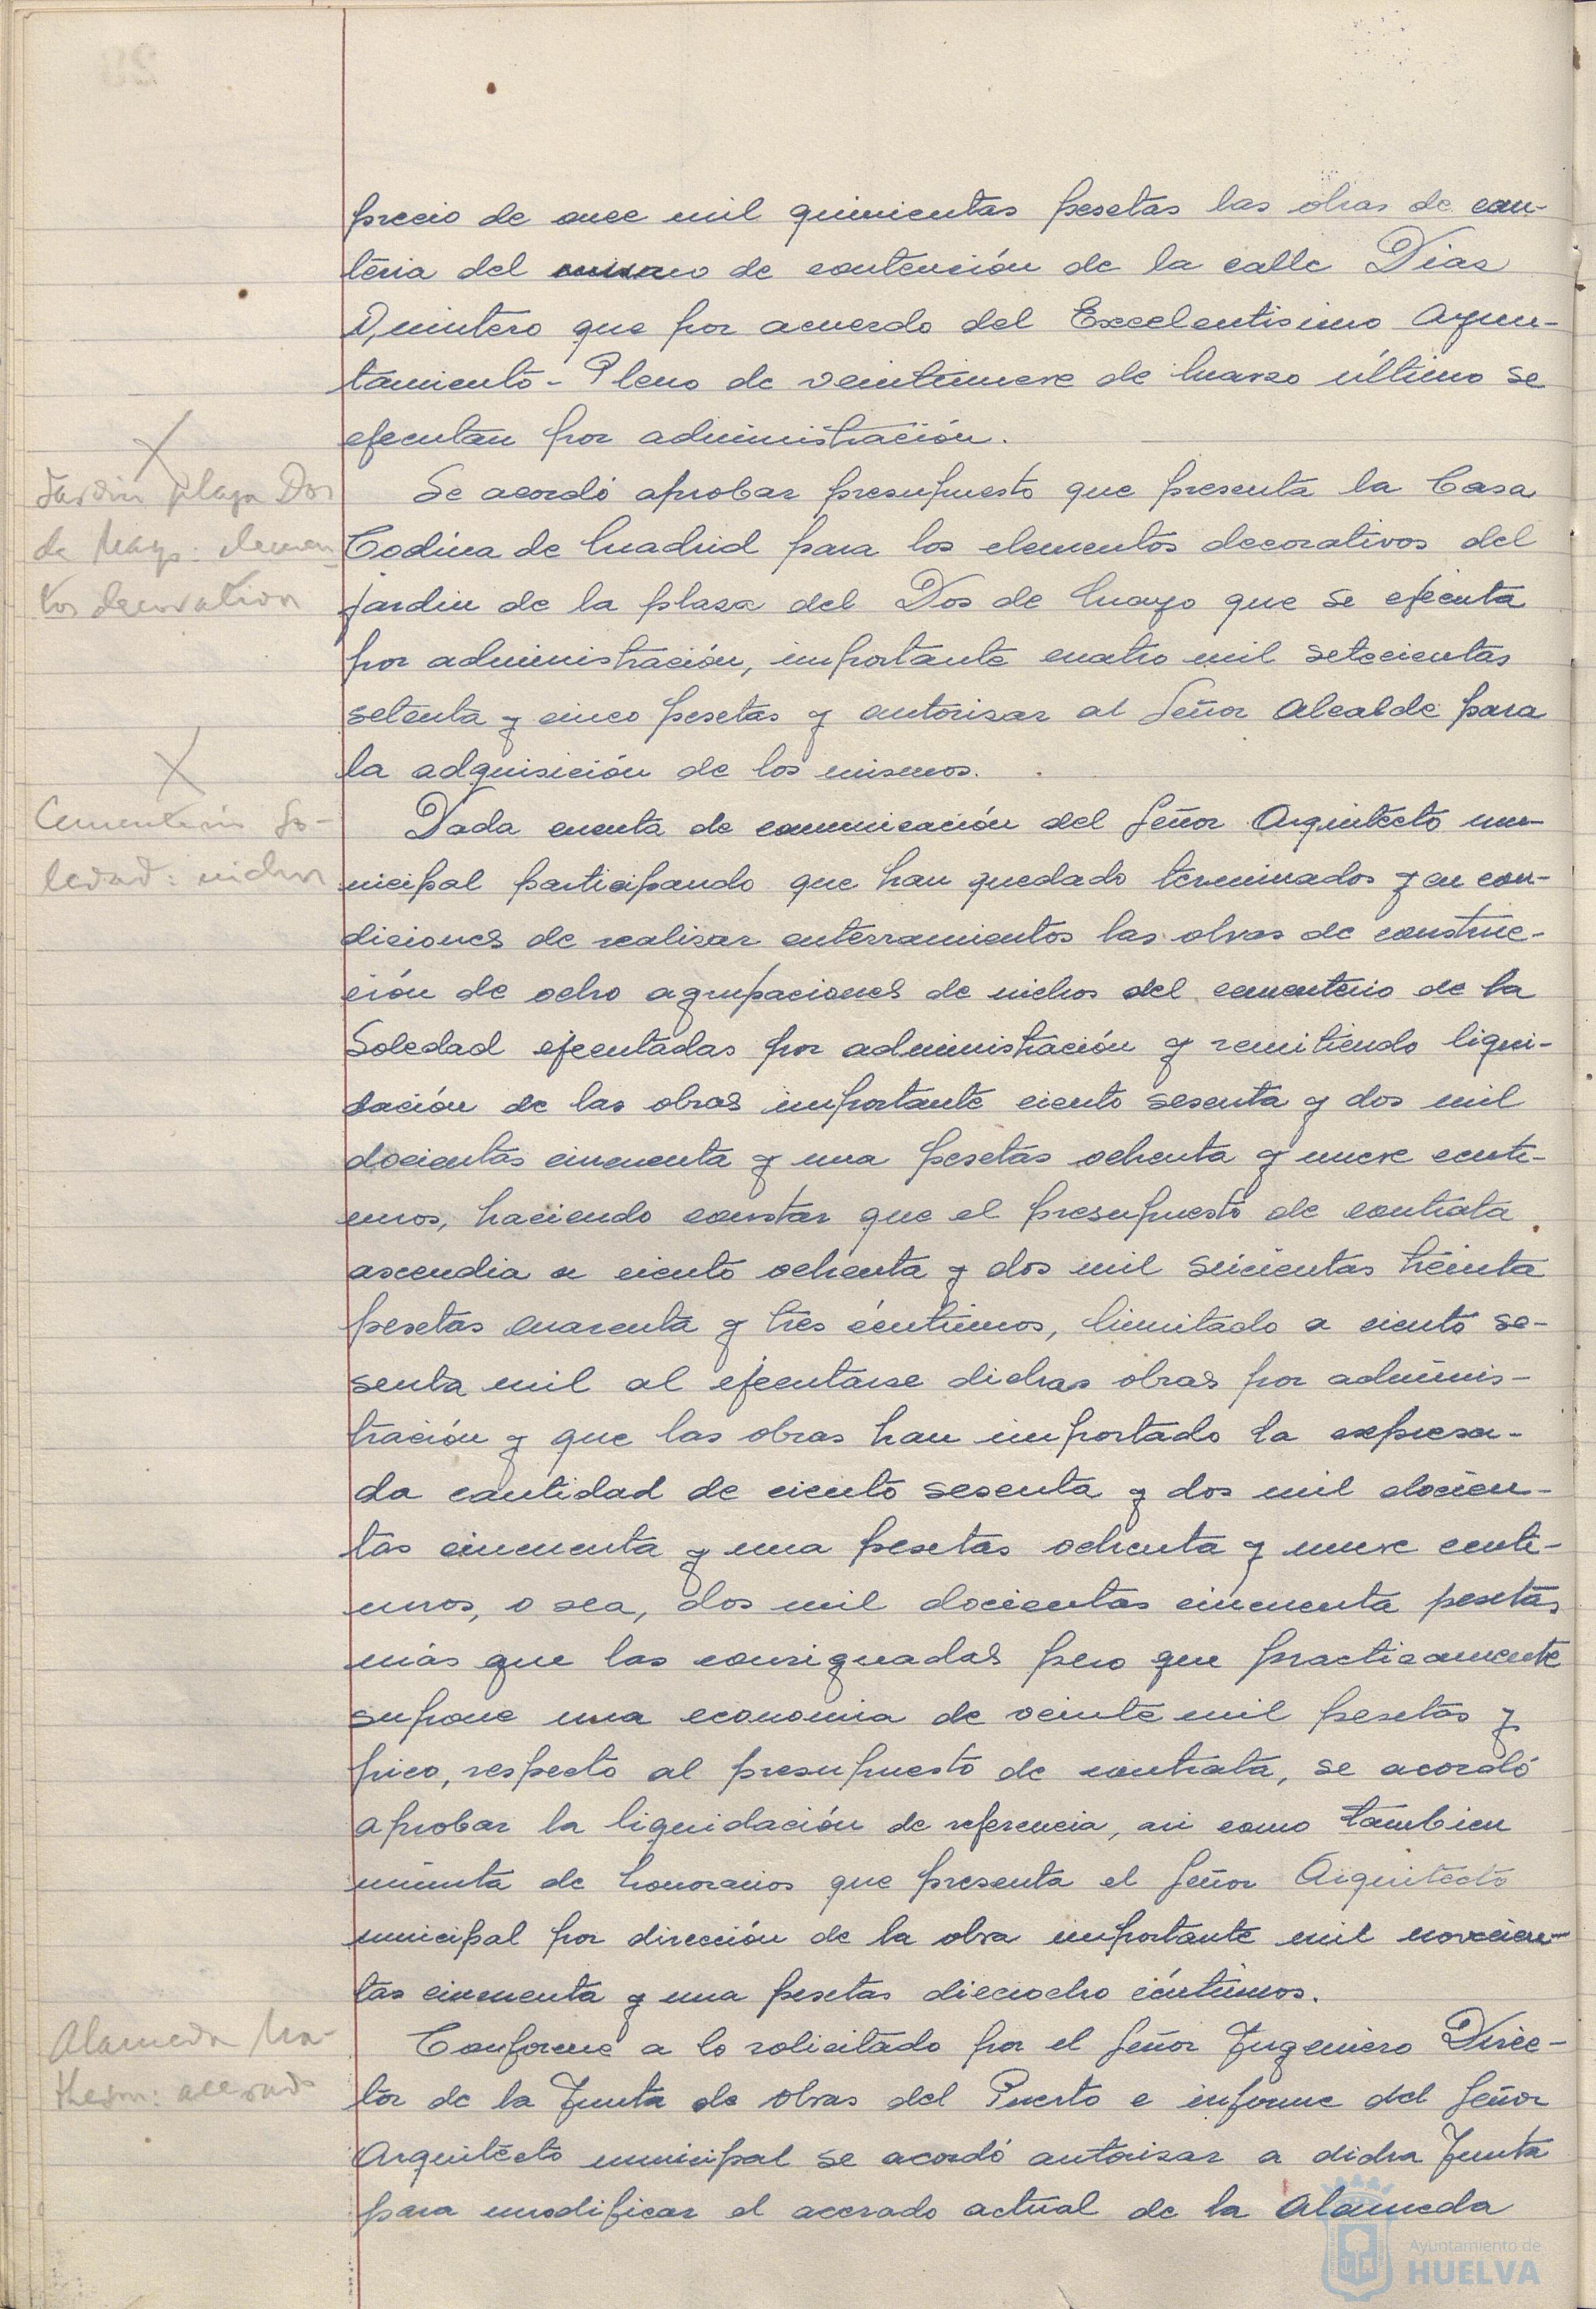 precio de once mil quinientas pesetas las obras de can-
teria del muro de contención de la calle Dias
Quintero que por acuerdo del Excelentisimo Ayun-
tamiento-Pleno de veintinueve de Marzo último se
ejecutan por administración.
Jardin plaza Dos
de Mayo: elemen
tos decorativos
Se acordó aprobar presupuesto que presenta la Casa
Codina de Madrid para los elementos decorativos del
jardin de la plasa del Dos de Mayo que se ejecuta
por administración, importante cuatro mil setecientas
setenta y cinco pesetas y autorisar al Señor Alcalde para
la adquisición de los mismos.
Cementerio So-
ledad: nichos
Dada cuenta de comunicación del Señor Arquitecto mu-
nicipal participando que han quedado terminados y en con-
diciones de realisar enterramientos las obras de construc-
ción de ocho agrupaciones de nichos del cementerio de la
Soledad ejecutadas por administración y remitiendo liqui-
dación de las obras importante ciento sesenta y dos mil
docientas cincuenta y una pesetas ochenta y nueve centi-
mos, haciendo constar que el presupuesto de contrata
ascendia a ciento ochenta y dos mil seicientas treinta
pesetas cuarenta y tres céntimos, limitado a ciento se-
senta mil al ejecutarse dichas obras por adminis-
tración y que las obras han importado la expresa-
da cantidad de ciento sesenta y dos mil docien-
tas cincuenta y una pesetas ochenta y nueve centi-
mos, o sea, dos mil docientas cincuenta pesetas
más que las consignadas pero que practicamente
supone una economia de veinte mil pesetas y
pico, respecto al presupuesto de contrata, se acordó
aprobar la liquidación de referencia, asi como tambien
minuta de honorarios que presenta el Señor Arquitecto
municipal por dirección de la obra importante mil novecien-
tas cincuenta y una pesetas dieciocho céntimos.
Alameda
acerado
Conforme a lo solicitado por el Señor Ingeniero Direc-
tor de la Junta de obras del Puerto e informe del Señor
Arquitecto municipal se acordó autorisar a dicha Junta
para modificar el acerado actual de la Alameda
Ayuntamiento de
HUELVA